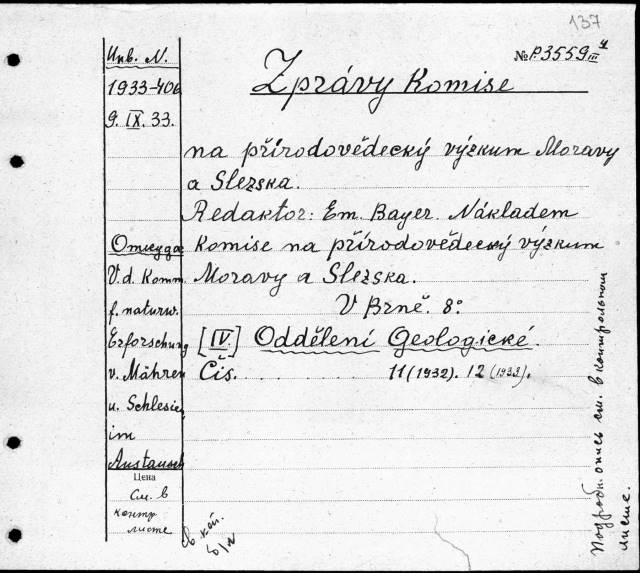 137
Инв. N.
1933-406
9. IX. 33.
№ P.3559 III 4
Zprávy Komise
na přírodovědecký výzkum Moravy
a Slezska.
Redaktor: Em. Bayer. Nákladem
Komise na přírodovědecký výzkum
Moravy a Slezska.
V Brně. 8°.
[IV.] Oddělení Geologické.
Čis. . . . . . 11 (1932). 12 (1933).
Откуда
V. d. Komm.
f. naturw.
Erforschung
v. Mähren
u. Schlesien
im
Austausch
Цена
См. в
контр.
листе
в кат.
б/м
Подробн. опись см. в контрольном
листе.